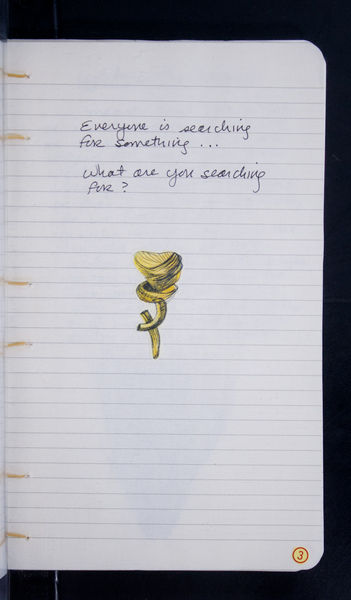 Everyone is searching
for something ...
What are you searching
for?
3